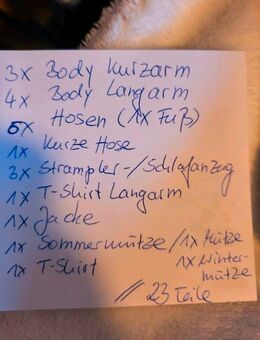 3x Body Kurzarm
4x Body Langarm
5x Hosen (1x Fuß)
1x Kurze Hose
3x Strampler-/Schlafanzug
1x T-Shirt Langarm
1x Jacke
1x Sommermütze/1x Mütze
1x T-Shirt 1x Winter-
mütze
// 23 Teile